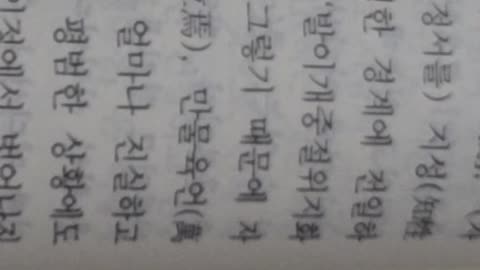 경서를) 지성(
한 경계에 전일하
발이개중절위지화
그렇기 때문에 자
焉), 만물육언(萬
얼마나 진실하고
평범한 상황에도
에서 벗어나지